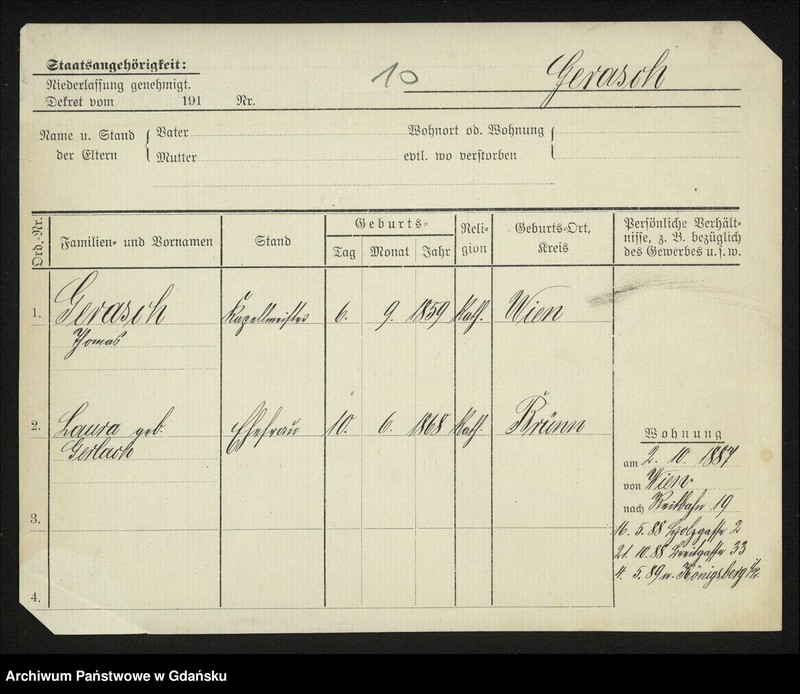 Staatsangehörigkeit:
Niederlassung genehmigt.
Dekret vom 191 Nr.
10
Gerasch
Name u. Stand der Eltern
Vater
Mutter
Wohnort od. Wohnung
evtl. wo verstorben
Ord.-Nr. Familien- und Vornamen Stand Geburts- Tag Monat Jahr Religion Geburts-Ort, Kreis Persönliche Verhältnisse, z. B. bezüglich des Gewerbes u. s. w.
1. Gerasch Kapellmeister 6. 9. 1859 Kath. Wien
Thomas
2. Laura geb. Ehefrau 10. 6. 1868 Kath. Brünn
Gerlach
3.
4.
Wohnung
am 2. 10. 1887
von Wien
nach Reitbahn 19
16. 5. 88 Holzgasse 2
21. 10. 88 Breitgasse 33
4. 5. 89 n. Königsberg i/Pr.
Archiwum Państwowe w Gdańsku